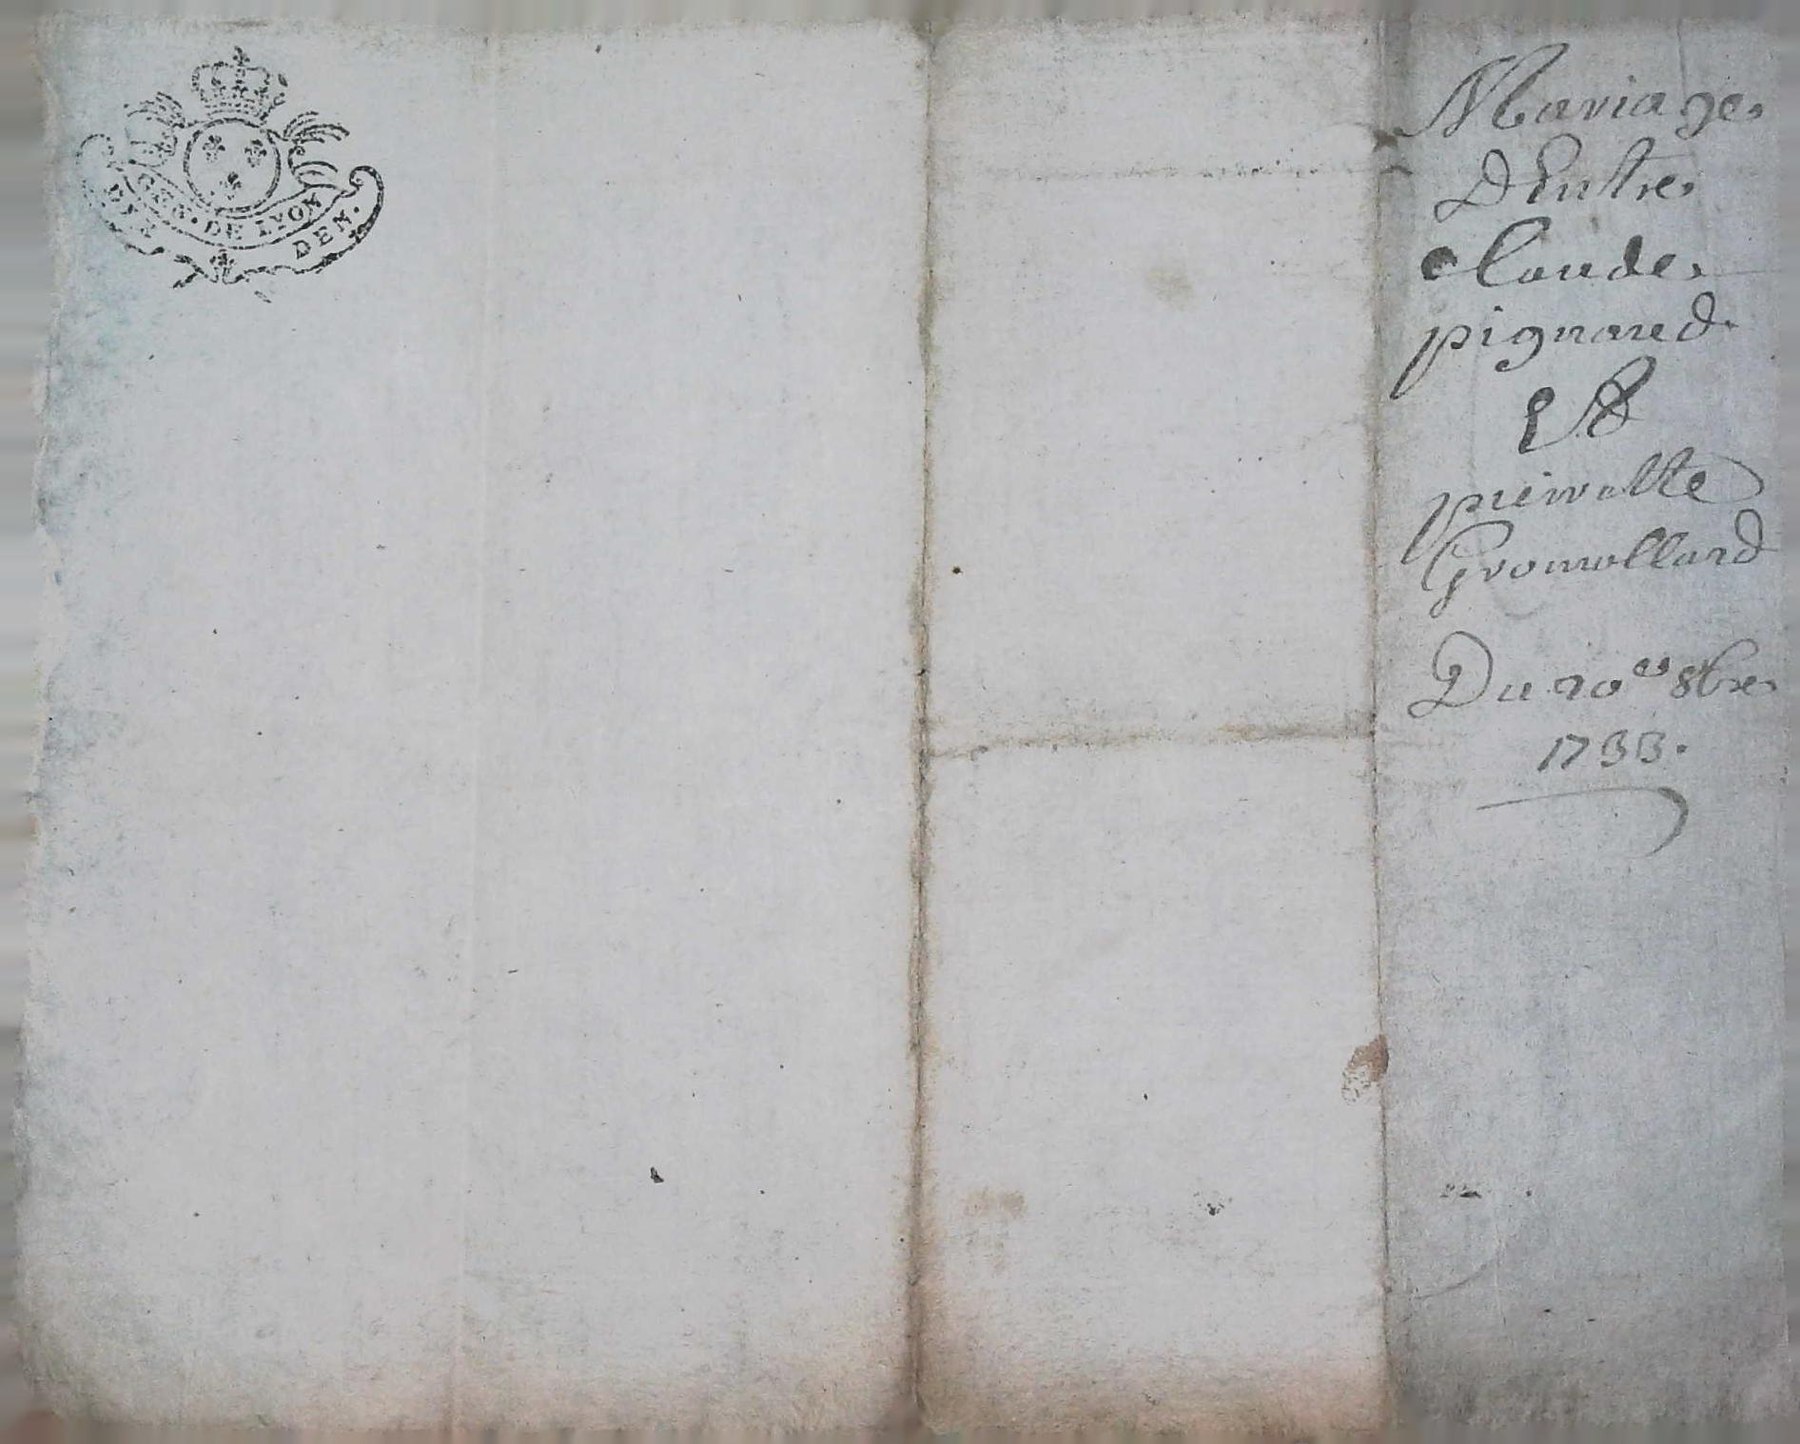 GEN. DE LYON
DEN.
Mariage
D Entre
Claude
pignard
Et
pierrette
Gronollard
Du 20es 8bre
1733.